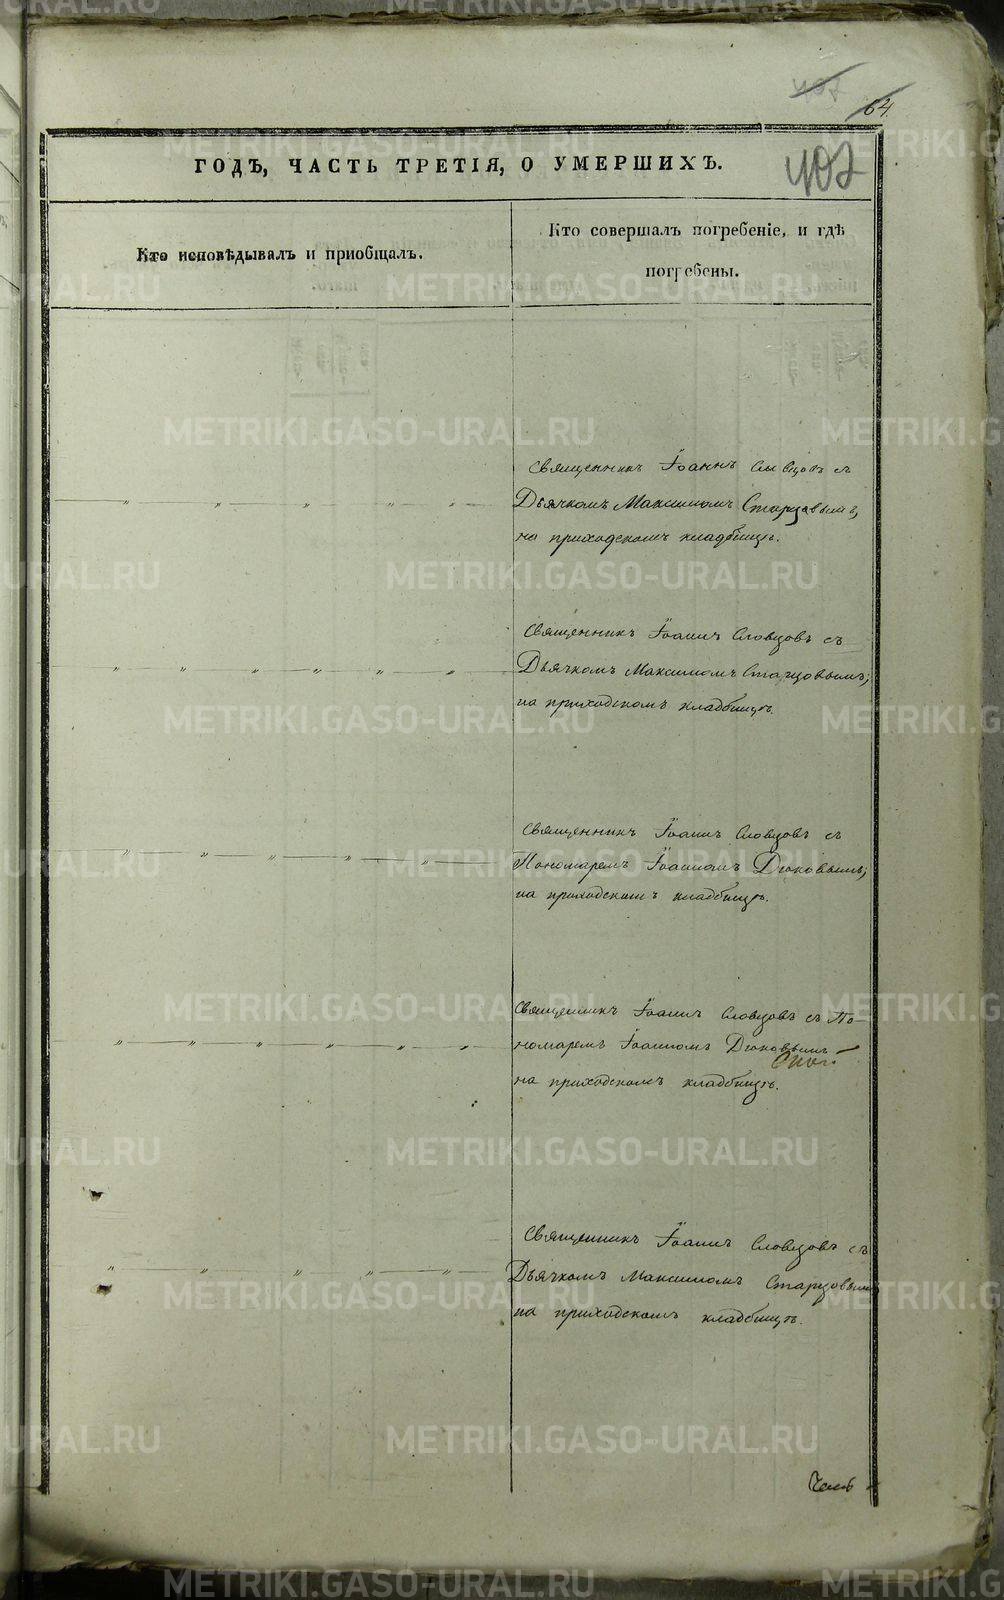 64.
402
ГОДЪ, ЧАСТЬ ТРЕТІЯ, О УМЕРШИХЪ.
Кто исповѣдывалъ и приобщалъ.
Кто совершалъ погребеніе, и гдѣ
погребены.
Священникъ Іоаннъ Словцовъ съ
Дьячкомъ Максимомъ Старцовымъ,
на приходскомъ кладбищѣ.
Священникъ Іоаннъ Словцовъ съ
Дьячкомъ Максимомъ Старцовымъ;
на приходскомъ кладбищѣ.
Священникъ Іоаннъ Словцовъ съ
Пономаремъ Іоанномъ Дюковымъ;
на приходскомъ кладбищѣ.
Священникъ Іоаннъ Словцовъ съ По-
номаремъ Іоанномъ Дюковымъ
на приходскомъ кладбищѣ.
Священникъ Іоаннъ Словцовъ съ
Дьячкомъ Максимомъ Старцовымъ
на приходскомъ кладбищѣ.
METRIKI.GASO-URAL.RU